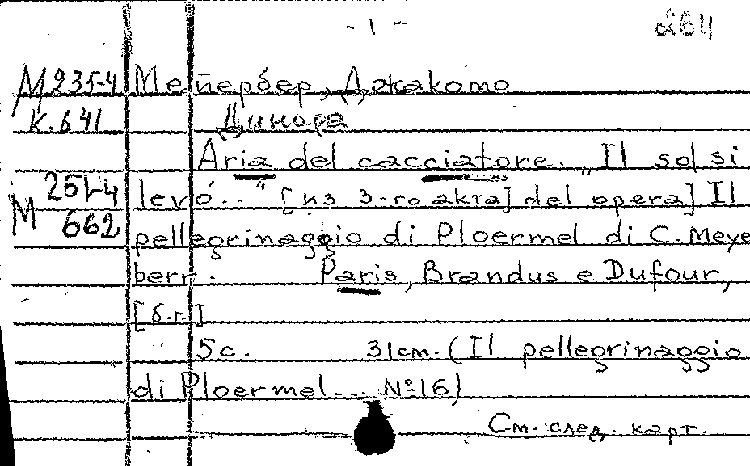 - 1 -
264
М 231-4 Мейербер, Джакомо
К.641 Динора
Aria del cacciatore. „Il sol si
М 251-4 levó.. “ [из 3-го акта] del opera] Il
662 pellegrinaggio di Ploermel di C. Meye
berr. Paris, Brandus e Dufour,
[б.г.]
5с. 31см. (Il pellegrinaggio
di Ploermel... №16)
См. след. карт.